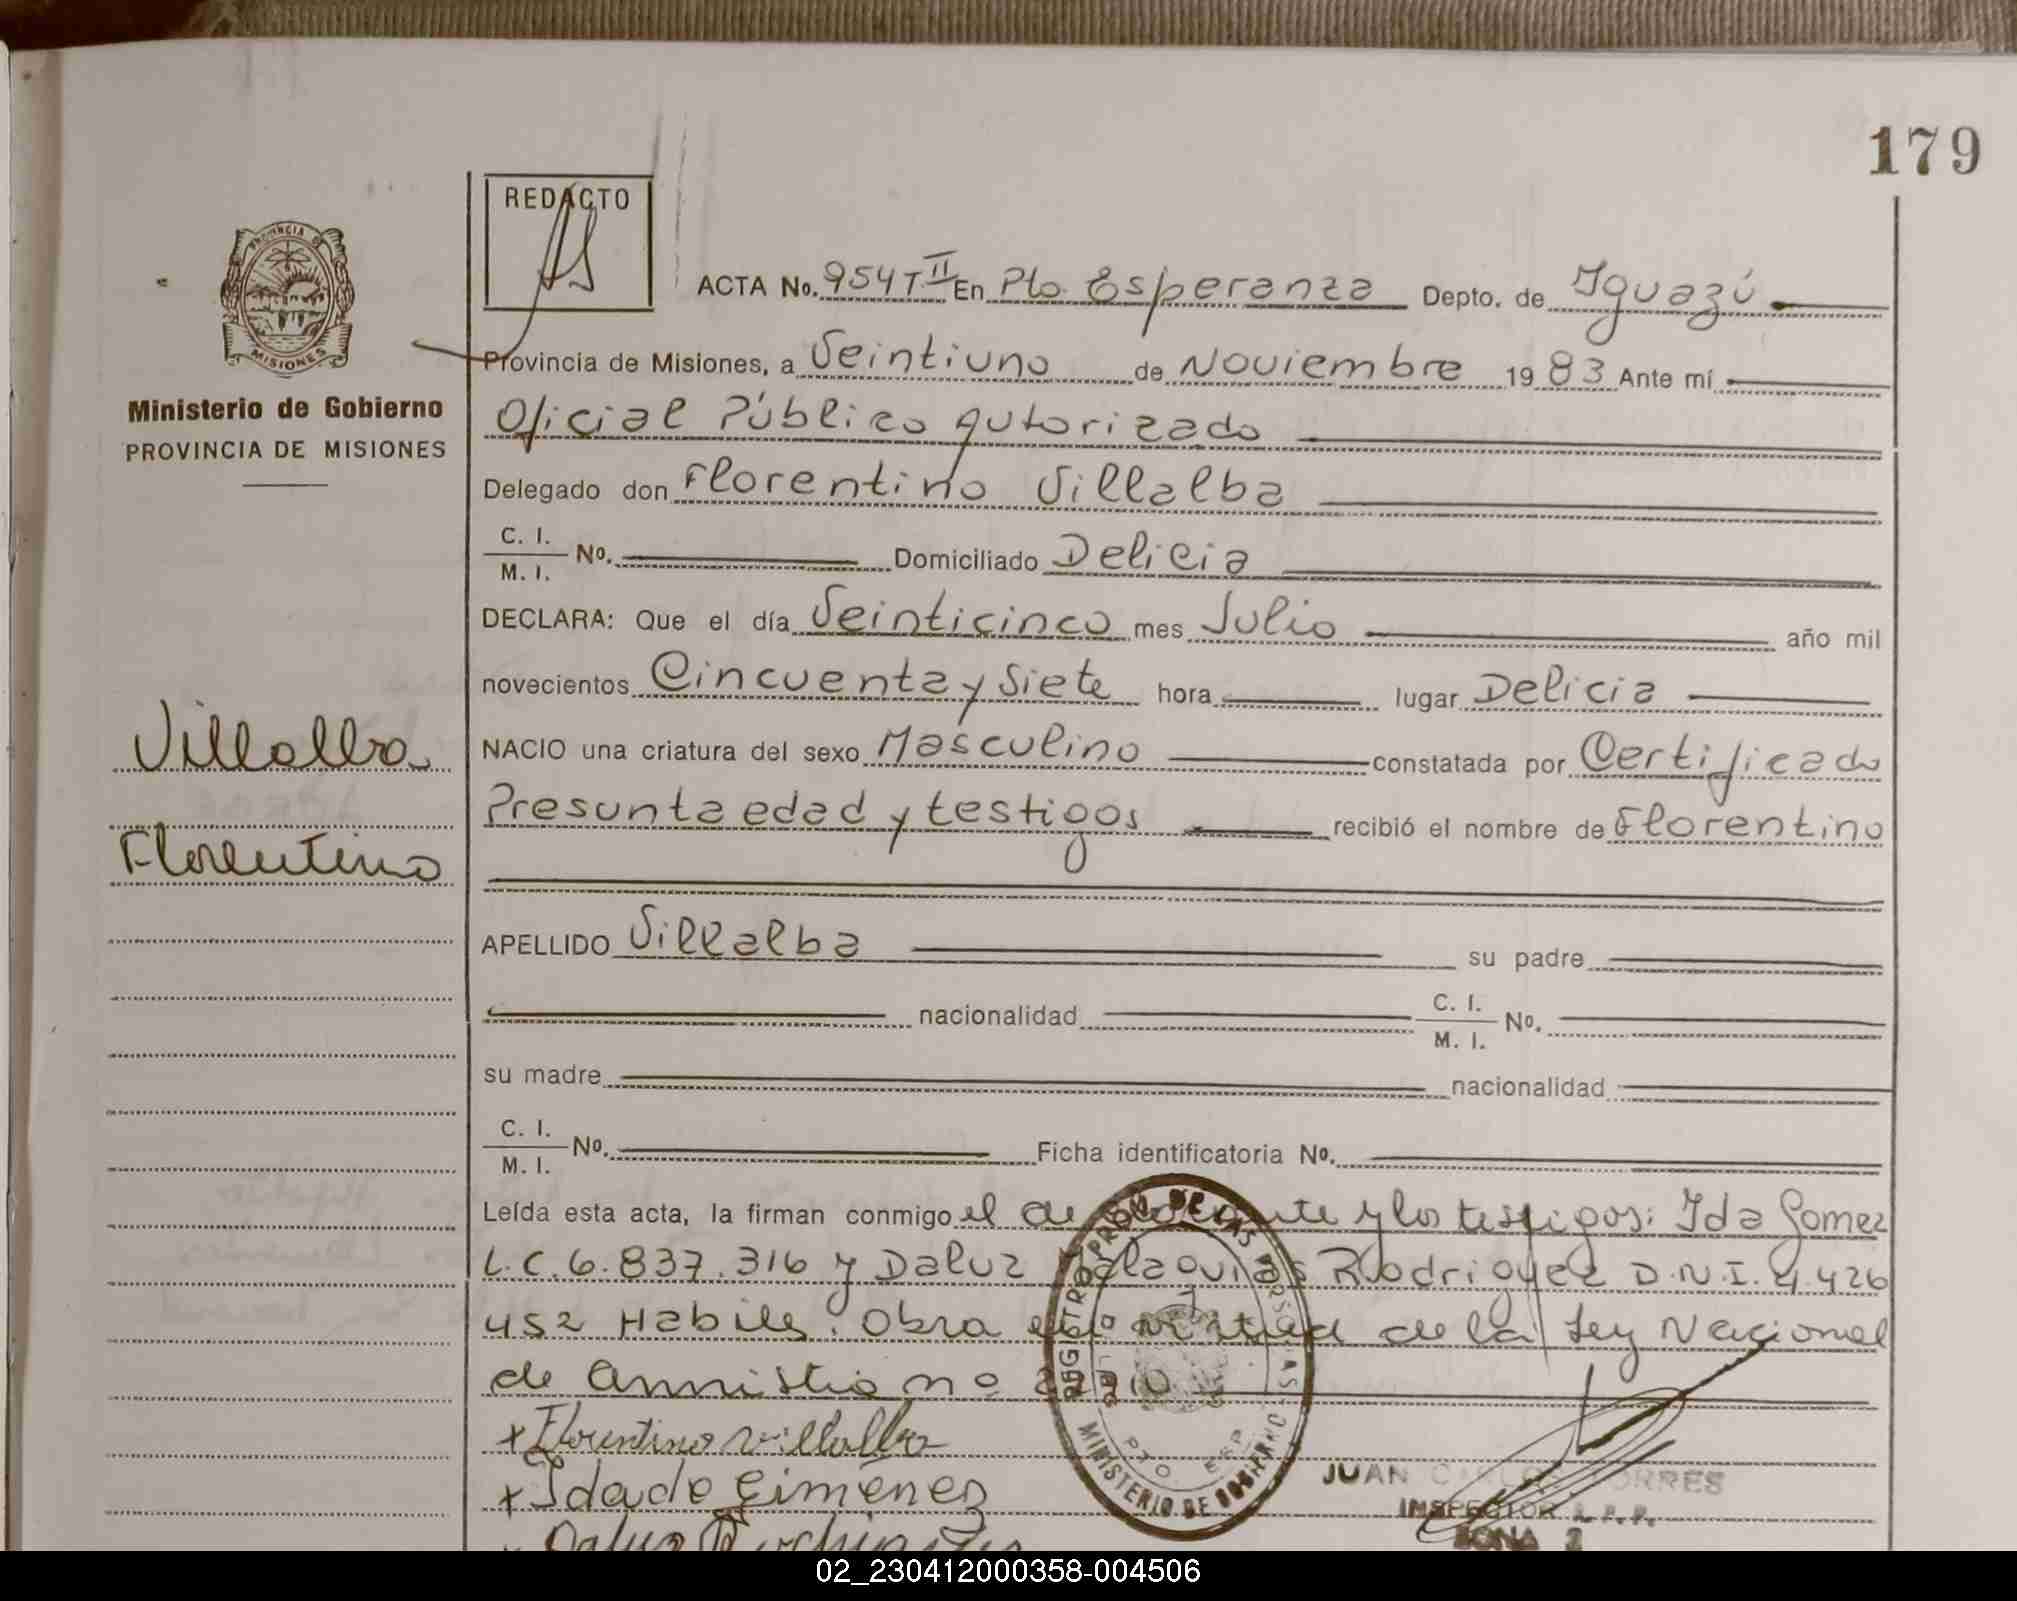 179
REDACTO
PROVINCIA DE
MISIONES
Ministerio de Gobierno
PROVINCIA DE MISIONES
ACTA No. 954 T II En Pto. Esperanza Depto. de Iguazú
Provincia de Misiones, a Veintiuno de Noviembre 1983 Ante mí
Oficial Público autorizado
Delegado don Florentino Villalba
C. I. / M. I. No. Domiciliado Delicia
DECLARA: Que el día Veinticinco mes Julio año mil
novecientos Cincuenta y Siete hora lugar Delicia
Villalba
NACIO una criatura del sexo Masculino constatada por Certificado
Presunta edad y testigos recibió el nombre de Florentino
Florentino
APELLIDO Villalba su padre
nacionalidad C. I. / M. I. No.
su madre nacionalidad
C. I. / M. I. No. Ficha identificatoria No.
Leída esta acta, la firman conmigo el y los testigos: Ida Gomez
L.C. 6.837.316 y Daluz Rodriguez D.N.I. 4.426
452 Habiles. Obra virtud de la Ley Nacional
de Amnistia nº
x Florentino Villalba
x Idado Gimenez
REGISTRO PROV. DE LAS PERSONAS
MINISTERIO DE GOBIERNO
PTO. ESP.
JUAN CARLOS TORRES
INSPECTOR R.P.P.
ZONA 2
02_230412000358-004506